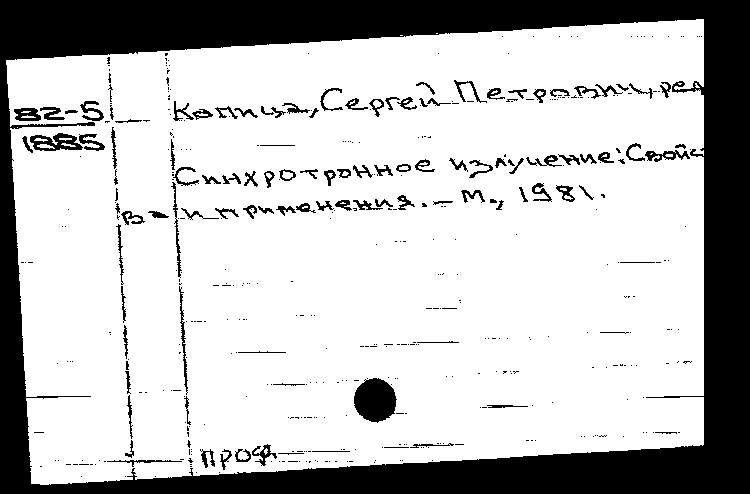 82-5
1885
Капица, Сергей Петрович, ред
Синхротронное излучение: Свойс
ва и применения. — М., 1981.
проф.